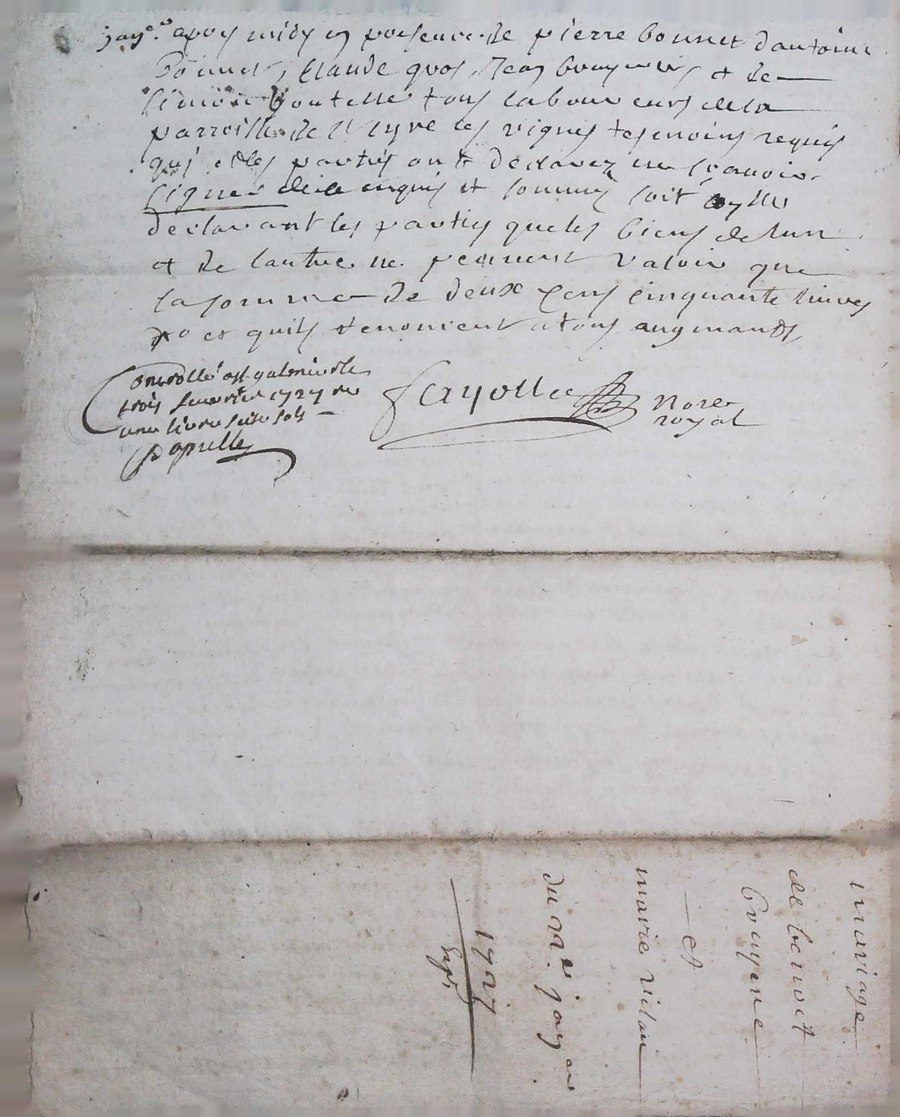 janer. apres midy en presence de pierre bonnet d'antoine
Bonnet, Claude quos, Jean bruyeres et de
simon boutelle tous laboureurs de la
parroisse de St Cyre les vignes tesmoins requis
qui et les parties ont declarez ne scavoir
signer de ce enquis et sommé soit
declarant les parties que les biens de lun
et de lautre ne peuvent valoir que
la somme de deux cens cinquante livres
et quils renoncent a tous augments
Controllé a st galmier le
trois fevrier 1727 Re
une livre seize sols
Fayolle Nore
royal
mariage
de benoit
bruyere
et
marie vilan
du janer
1727
Expé.